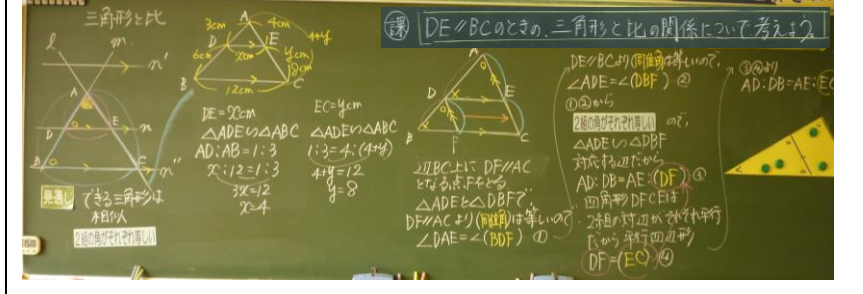 三角形と比
l m
n'
A
D E n
B C n''
見通し できる三角形は
相似
2組の角がそれぞれ等しい
A
3cm 4cm
D E 4+y
6cm xcm ycm
8cm
B 12cm C
DE=xcm
△ADE∽△ABC
AD:AB=1:3
x:12=1:3
3x=12
x=4
EC=ycm
△ADE∽△ABC
1:3=4:(4+y)
4+y=12
y=8
課 DE//BCのときの、三角形と比の関係について考えよう。
A
D E
B F C
辺BC上に DF//AC
となる点Fをとる
△ADEと△DBFで、
DF//ACより(同位角)は等しいので
∠DAE=∠(BDF) ①
DE//BCより(同位角)は等しいので、
∠ADE=∠(DBF) ②
①②から
2組の角がそれぞれ等しい ので、
△ADE∽△DBF
対応する辺だから
AD:DB=AE:(DF) ③
四角形DFCEは
2組の対辺がそれぞれ平行
だから平行四辺形
DF=(EC) ④
③④より
AD:DB=AE:EC